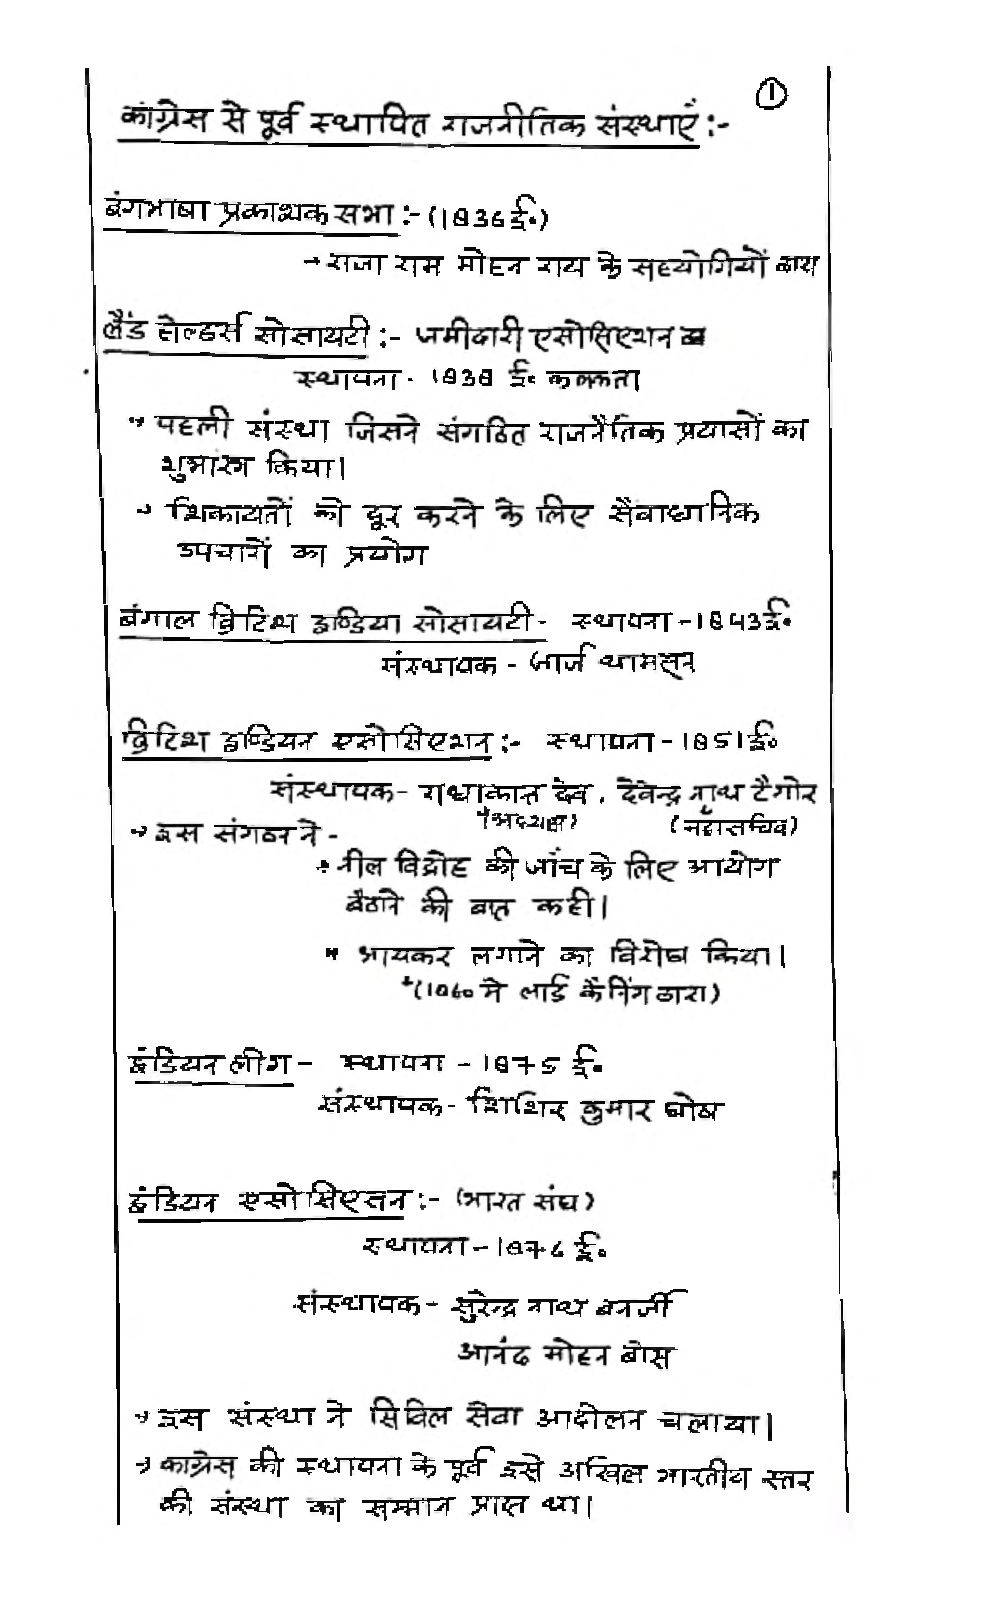 ①
कांग्रेस से पूर्व स्थापित राजनीतिक संस्थाएँ :-
बंगभाषा प्रकाशक सभा :- (1836 ई॰)
→ राजा राम मोहन राय के सहयोगियों द्वारा
लैंड होल्डर्स सोसायटी :- जमींदारी एसोसिएशन
स्थापना - 1838 ई॰ कलकता
→ पहली संस्था जिसने संगठित राजनैतिक प्रयासों का
शुभारंभ किया।
→ शिकायतों को दूर करने के लिए सैंवाधानिक
उपचारों का प्रयोग
बंगाल ब्रिटिश इण्डिया सोसायटी - स्थापना - 1843 ई॰
संस्थापक - जार्ज थामसन
ब्रिटिश इण्डियन एसोसिएशन :- स्थापना - 1851 ई॰
संस्थापक - राधाकान्त देव, देवेन्द्र नाथ टैगोर
(अध्यक्ष) (महासचिव)
→ इस संगठन ने -
→ नील विद्रोह की जाँच के लिए आयोग
बैठाने की बात कही।
→ आयकर लगाने का विरोध किया।
(1860 मे लार्ड कैनिंग द्वारा)
इंडियन लीग - स्थापना - 1875 ई॰
संस्थापक - शिशिर कुमार घोष
इंडियन एसोसिएसन :- (भारत संघ)
स्थापना - 1876 ई॰
संस्थापक - सुरेन्द्र नाथ बनर्जी
आनंद मोहन बोस
→ इस संस्था ने सिविल सेवा आदोलन चलाया।
→ कांग्रेस की स्थापना के पूर्व इसे अखिल भारतीय स्तर
की संस्था का सम्मान प्राप्त था।